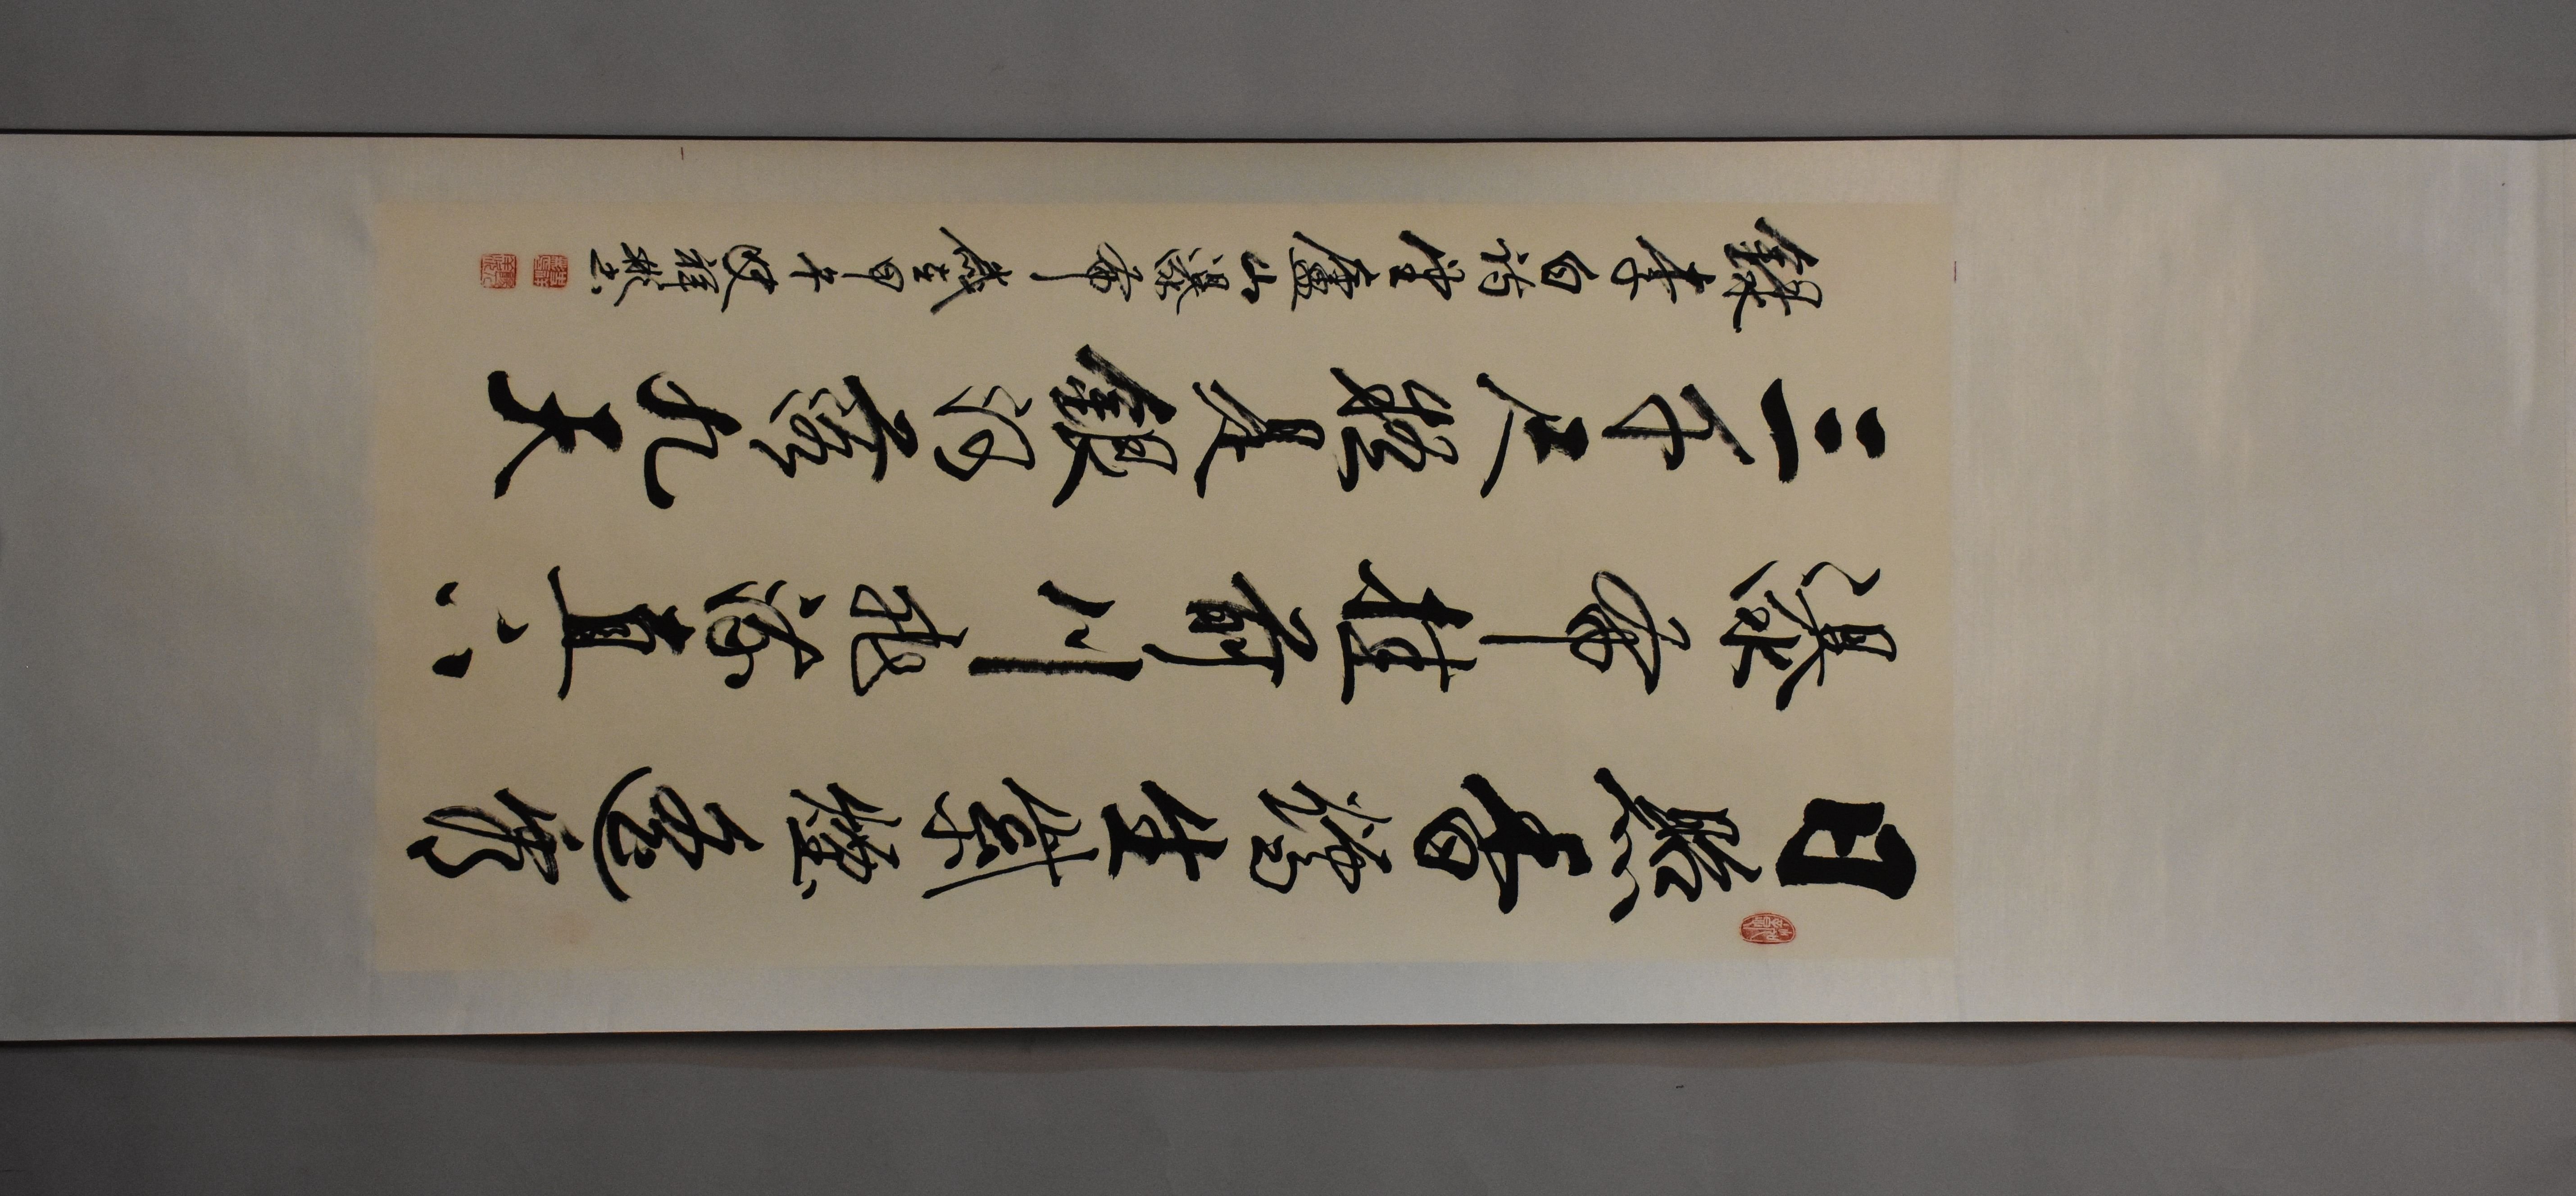 日照香爐生紫煙遙看
瀑布挂前川飛流直下
三千尺疑是銀河落九天
錄李白詩望廬山瀑布歲在甲午